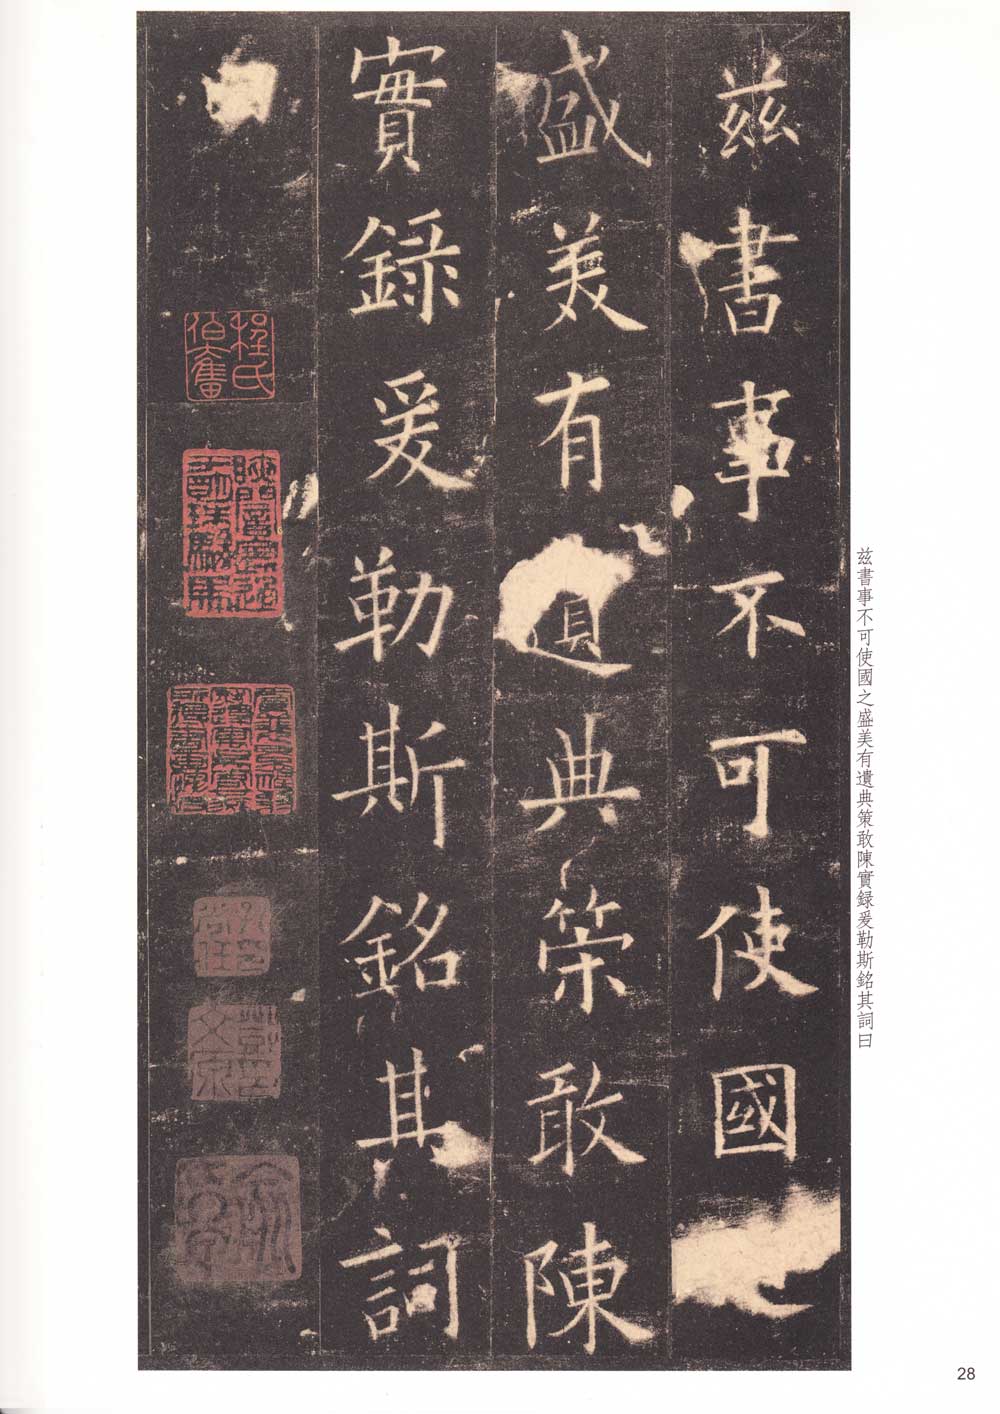 兹書事不可使國之盛美有遺典策敢陳實録爰勒斯銘其詞曰
兹書事不可使國
盛美有遺典策敢陳
實錄爰勒斯銘其詞
程氏
伯奮
28